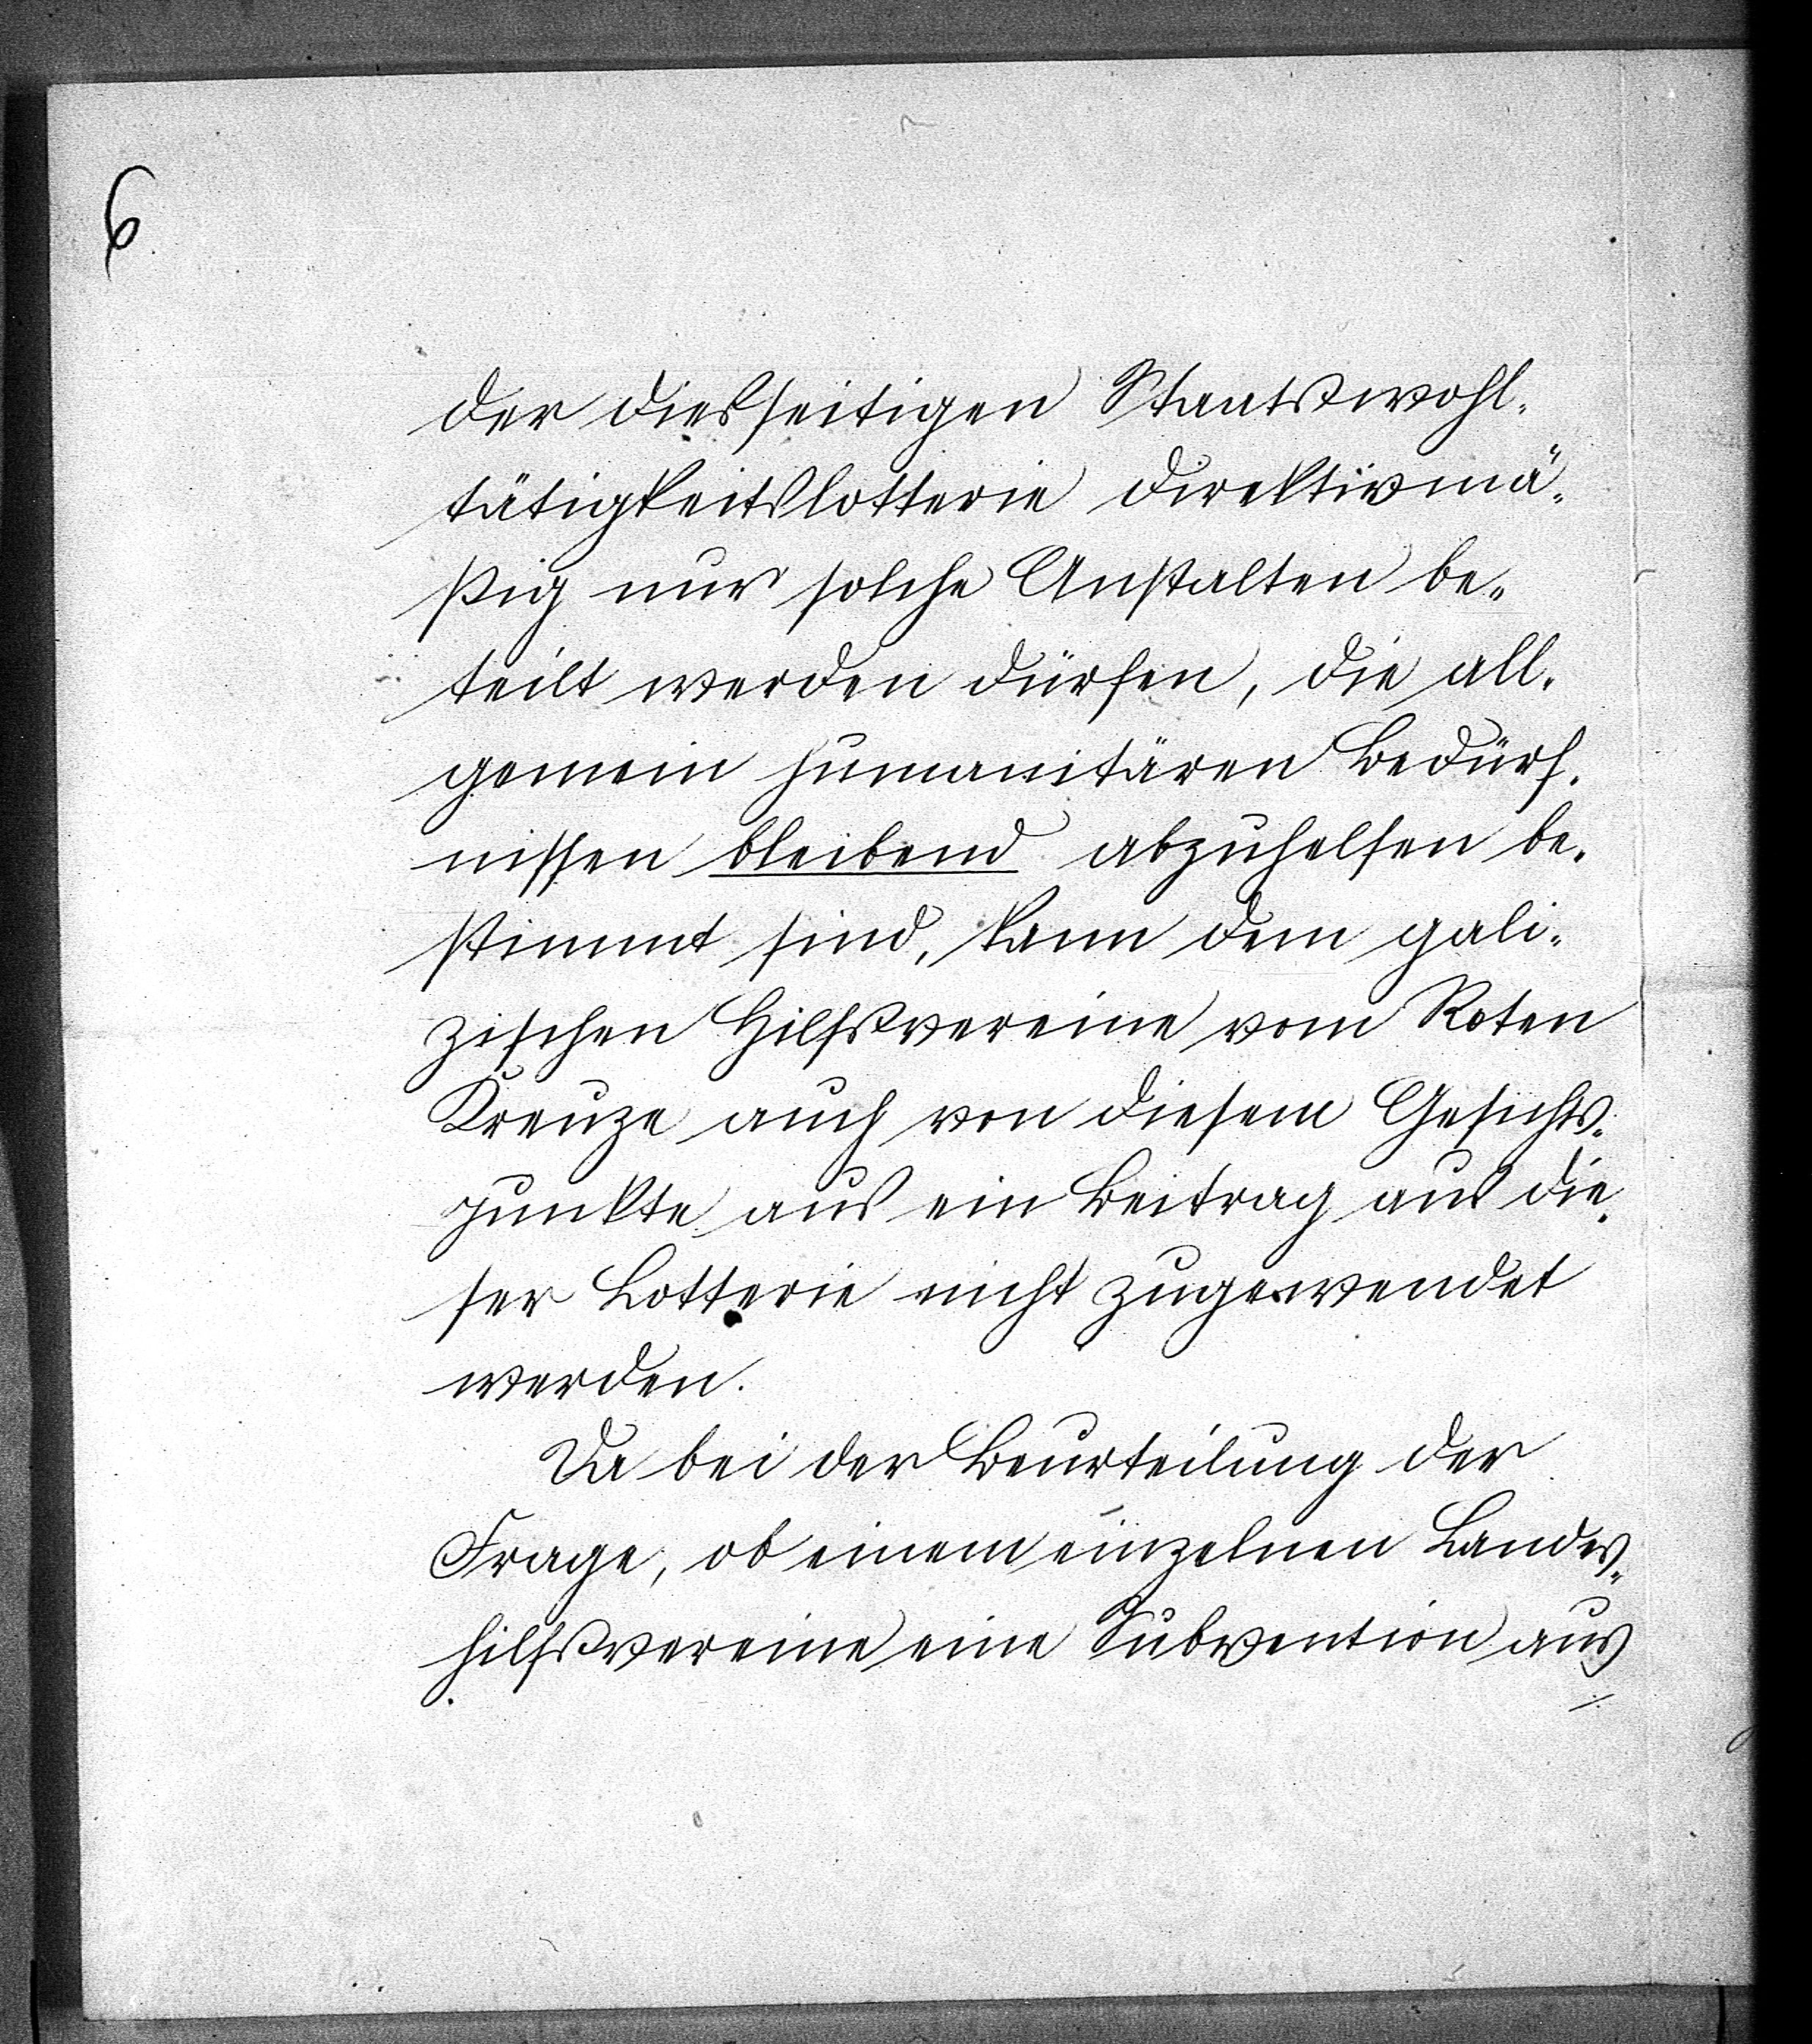 6
der diesseitigen Staatswohl-
tätigkeitslotterie direktivmä-
ßig nur solche Anstalten be-
teilt werden dürfen, die all-
gemein humanitären Bedürf-
nissen bleibend abzuhelfen be-
stimmt sind, kann dem gali-
zischen Hilfsvereine vom Roten
Kreuze auch von diesem Gesichts-
punkte aus ein Beitrag aus die-
ser Lotterie nicht zugewendet
werden.
Da bei der Beurteilung der
Frage, ob einem einzelnen Landes-
hilfsvereine eine Subvention aus